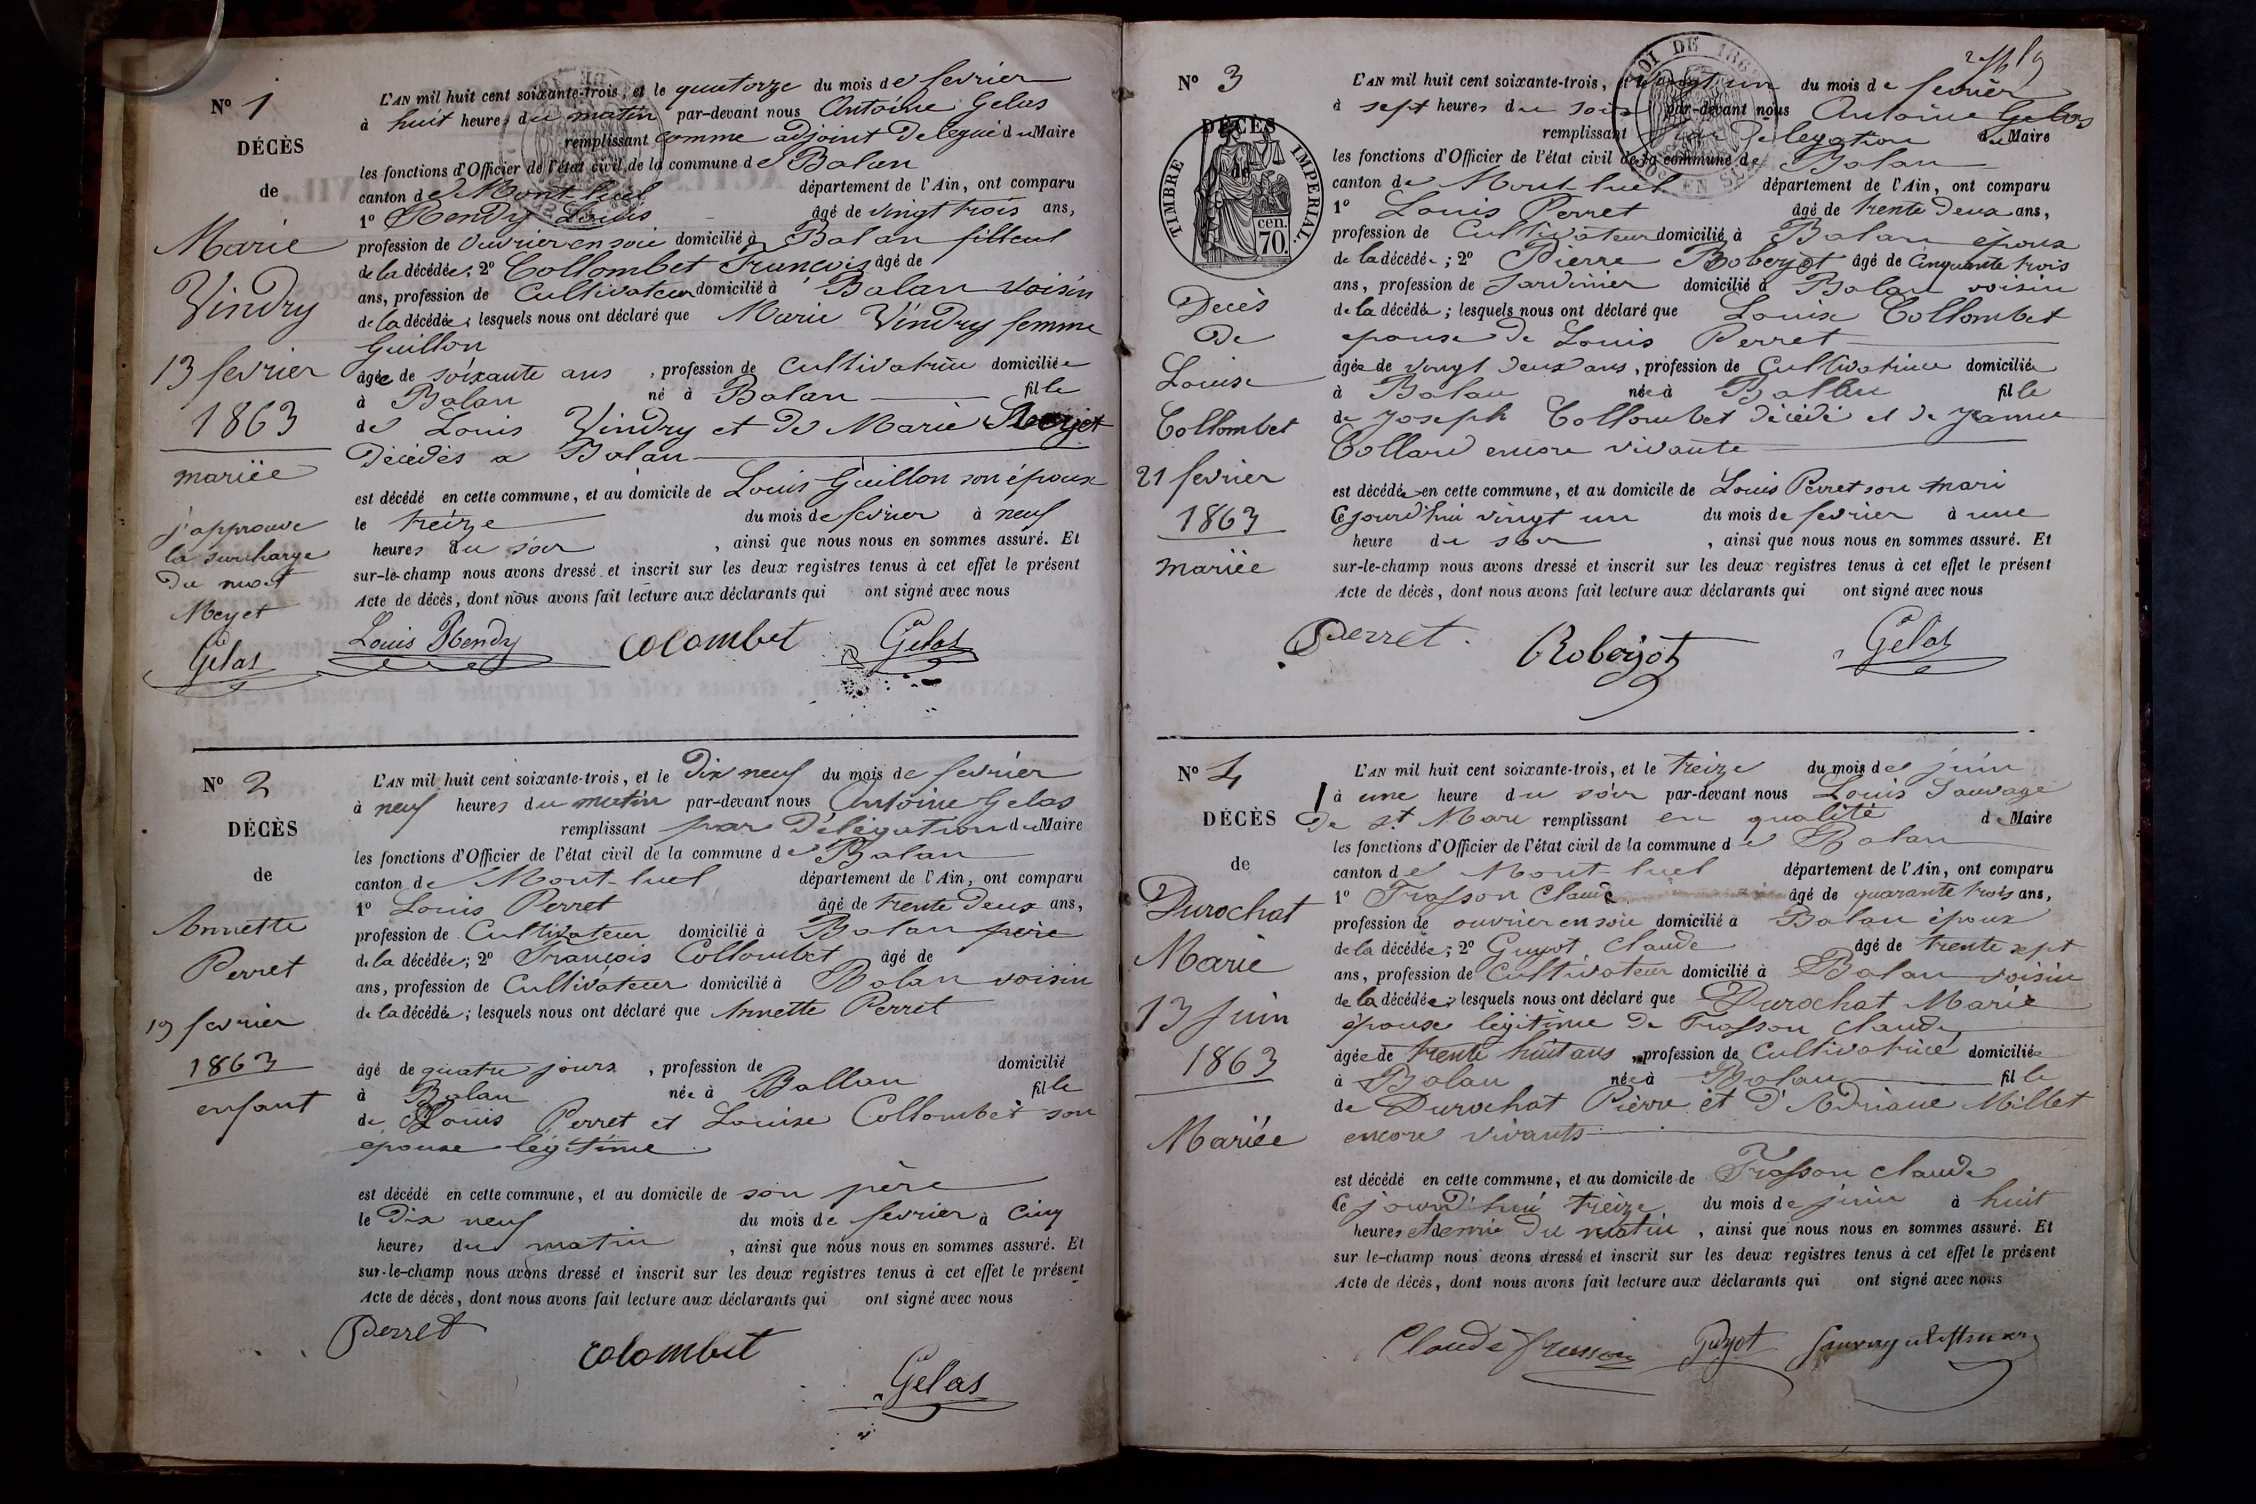 N° 1
DÉCÈS
de
Marie
Vindry
13 fevrier
1863
mariée
j'approuve
la surcharge
du mot
Meyet
Gelas
L'AN mil huit cent soixante-trois, et le quatorze du mois de fevrier
à huit heures du matin par-devant nous Antoine Gelas
remplissant comme adjoint délégué du Maire
les fonctions d'Officier de l'état civil de la commune de Balan
canton de Mont-luel département de l'Ain, ont comparu
1° Rendy Louis âgé de vingt trois ans,
profession de ouvrier en soie domicilié à Balan filleul
de la décédée; 2° Collombet François âgé de
ans, profession de Cultivateur domicilié à Balan voisin
de la décédée; lesquels nous ont déclaré que Marie Vindry femme
Guillon
âgée de soixante ans, profession de cultivatrice domiciliée
à Balan né à Balan fille
de Louis Vindry et de Marie Meyet
Décédés a Balan
est décédé en cette commune, et au domicile de Louis Guillon son époux
le treize du mois de fevrier à neuf
heures du soir, ainsi que nous nous en sommes assuré. Et
sur-le-champ nous avons dressé et inscrit sur les deux registres tenus à cet effet le présent
Acte de décès, dont nous avons fait lecture aux déclarants qui ont signé avec nous
Louis Rendy colombet Gelas
N° 2
DÉCÈS
de
Annette
Perret
19 fevrier
1863
enfant
L'AN mil huit cent soixante-trois, et le Dix neuf du mois de fevrier
à neuf heures du matin par-devant nous Antoine Gelas
remplissant par Délégation du Maire
les fonctions d'Officier de l'état civil de la commune de Balan
canton de Mont-luel département de l'Ain, ont comparu
1° Louis Perret âgé de trente Deux ans,
profession de Cultivateur domicilié à Balan père
de la décédée; 2° François Collombet âgé de
ans, profession de Cultivateur domicilié à Balan voisin
de la décédée; lesquels nous ont déclaré que Annette Perret
âgé de quatre jours, profession de domicilié
à Balan née à Ballan fille
de Louis Perret et Louise Collombet son
epouse légitime
est décédé en cette commune, et au domicile de son père
le Dix neuf du mois de fevrier à Cinq
heures du matin, ainsi que nous nous en sommes assuré. Et
sur-le-champ nous avons dressé et inscrit sur les deux registres tenus à cet effet le présent
Acte de décès, dont nous avons fait lecture aux déclarants qui ont signé avec nous
Perret
colombet
Gelas
N° 3
DÉCÈS
de
TIMBRE IMPERIAL.
cen.
70
Décès
De
Louise
Collombet
21 fevrier
1863
mariée
LOI DE
L'AN mil huit cent soixante-trois, et vingt un du mois de fevrier
à sept heures du soir par-devant nous Antoine Gelas
remplissant par Delegation du Maire
les fonctions d'Officier de l'état civil de la commune de Balan
canton de Mont-luel département de l'Ain, ont comparu
1° Louis Perret âgé de trente Deux ans,
profession de Cultivateur domicilié à Balan époux
de la décédée; 2° Pierre Roberjot âgé de Cinquante trois
ans, profession de Jardinier domicilié à Balan voisin
de la décédée; lesquels nous ont déclaré que Louise Collombet
epouse De Louis Perret
âgée de vingt deux ans, profession de Cultivatrice domiciliée
à Balan née à Ballan fille
de Joseph Collombet décédé et de Jeanne
Colland encore vivante
est décédée en cette commune, et au domicile de Louis Perret son mari
Cejourd'hui vingt un du mois de fevrier à une
heure du soir, ainsi que nous nous en sommes assuré. Et
sur-le-champ nous avons dressé et inscrit sur les deux registres tenus à cet effet le présent
Acte de décès, dont nous avons fait lecture aux déclarants qui ont signé avec nous
Perret. Roberjot Gelas
N° 4
DÉCÈS
de
Durochat
Marie
13 Juin
1863
Mariée
L'AN mil huit cent soixante-trois, et le treize du mois de juin
à une heure du soir par-devant nous Louis Sauvage
De St Marc remplissant en qualité de Maire
les fonctions d'Officier de l'état civil de la commune de Balan
canton de Mont-luel département de l'Ain, ont comparu
1° Frasson Claude âgé de quarante trois ans,
profession de ouvrier en soie domicilié à Balan époux
de la décédée; 2° Guyot Claude âgé de trente sept
ans, profession de Cultivateur domicilié à Balan voisin
de la décédée; lesquels nous ont déclaré que Durochat Marie
épouse légitime De Frasson Claude
âgée de trente huit ans, profession de Cultivatrice domiciliée
à Balan née à Balan fille
de Durochat Pierre et D'Adriane Millet
encore vivants
est décédé en cette commune, et au domicile de Frasson Claude
Ce jourd'hui treize du mois de juin à huit
heures et demie du matin, ainsi que nous nous en sommes assuré. Et
sur le-champ nous avons dressé et inscrit sur les deux registres tenus à cet effet le présent
Acte de décès, dont nous avons fait lecture aux déclarants qui ont signé avec nous
Claude frasson Guyot